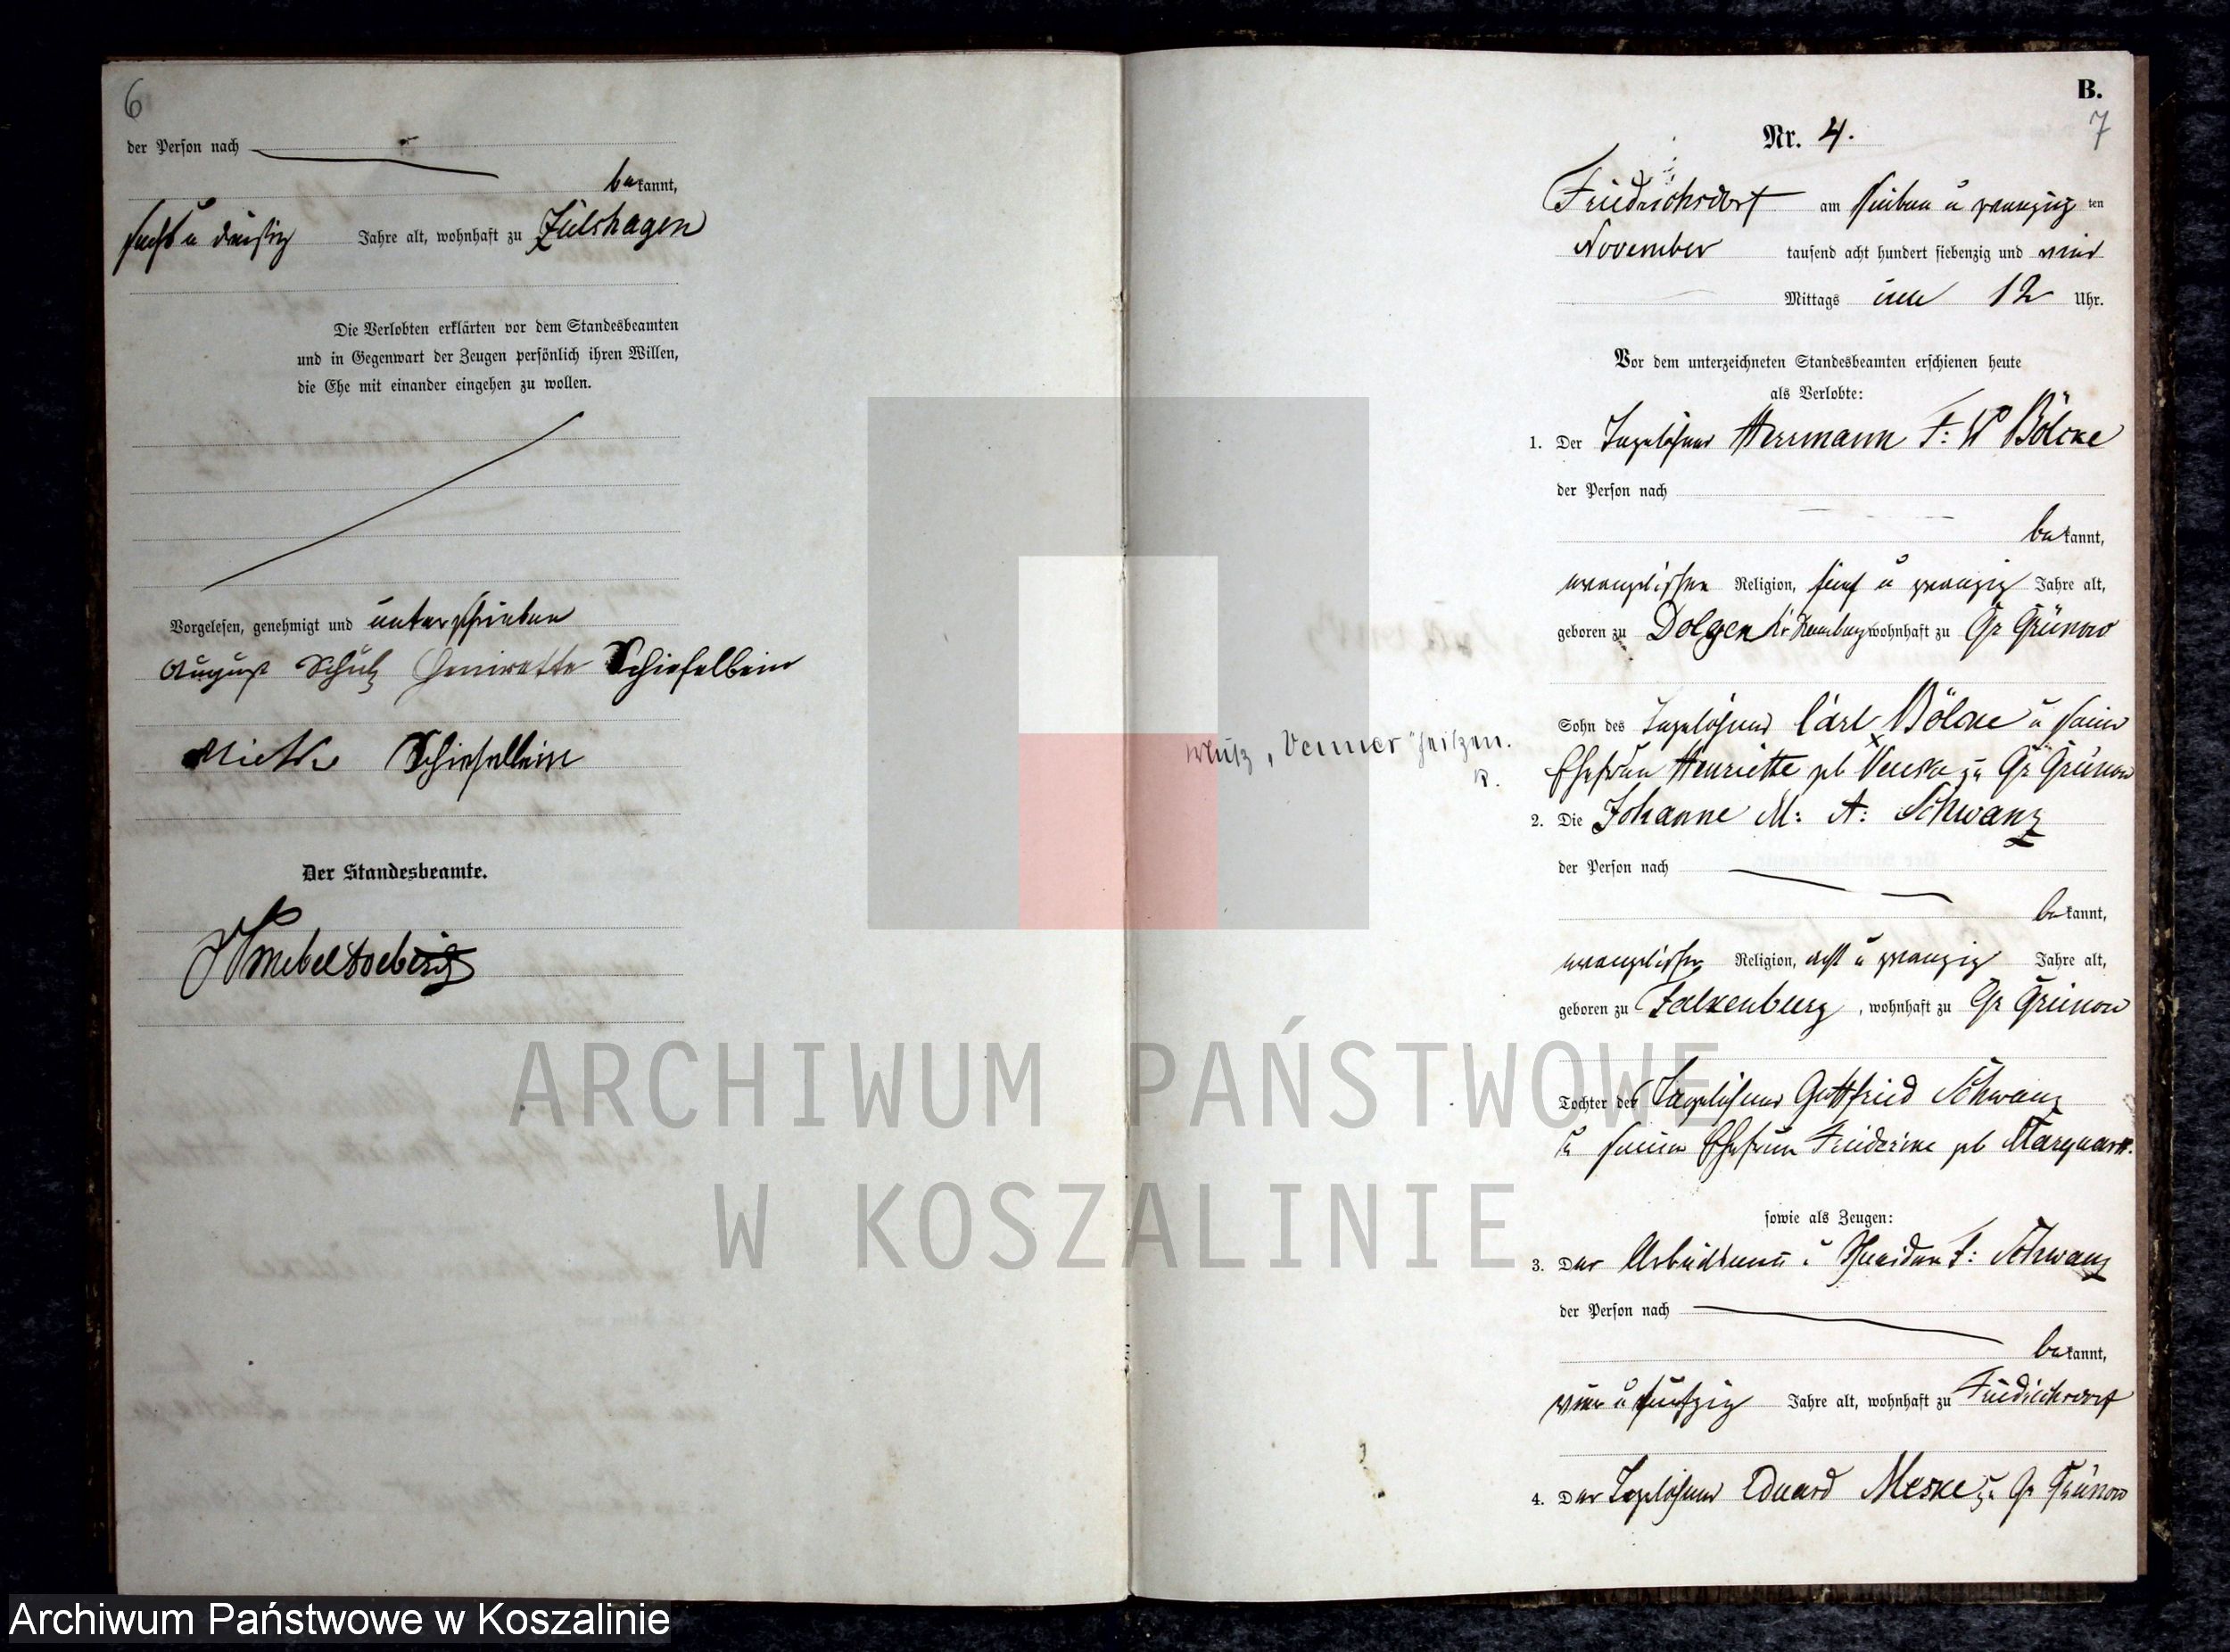 6
der Person nach
bekannt,
sechs u dreißig Jahre alt, wohnhaft zu Zülshagen
Die Verlobten erklärten vor dem Standesbeamten
und in Gegenwart der Zeugen persönlich ihren Willen,
die Ehe mit einander eingehen zu wollen.
Vorgelesen, genehmigt und unterschrieben
August Schulz Henirette Schiefelbein
Schiefelbein
Der Standesbeamte.
B.
7
Nr. 4.
Friedrichsdorf am sieben u zwanzig ten
November tausend acht hundert siebenzig und vier
Mittags um 12 Uhr.
Vor dem unterzeichneten Standesbeamten erschienen heute
als Verlobte:
1. Der Tagelöhner Herrmann F: W Bölcke
der Person nach
bekannt,
evangelischer Religion, fünf u zwanzig Jahre alt,
geboren zu Dolgen wohnhaft zu Gr Grünow
Sohn des Tagelöhner Carl Bölcke u seiner
Ehefrau Henriette geb Venske zu Gr Grünow
"Venner"
2. Die Johanne M: A: Schwanz
der Person nach
bekannt,
evangelischer Religion, acht u zwanzig Jahre alt,
geboren zu Falkenburg, wohnhaft zu Gr Grünow
Tochter des Tagelöhner Gottfried Schwanz
u seiner Ehefrau Friederike geb Marquardt.
sowie als Zeugen:
3. Der Arbeitsmann F: Schwanz
der Person nach
bekannt,
vier u fünfzig Jahre alt, wohnhaft zu Friedrichsdorf
4. Der Tagelöhner Eduard Meske zu Gr Grünow
ARCHIWUM PAŃSTWOWE
W KOSZALINIE
Archiwum Państwowe w Koszalinie